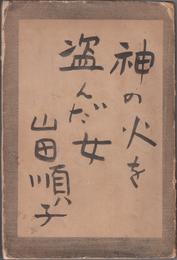 神の火を
盗んだ女
山田順子